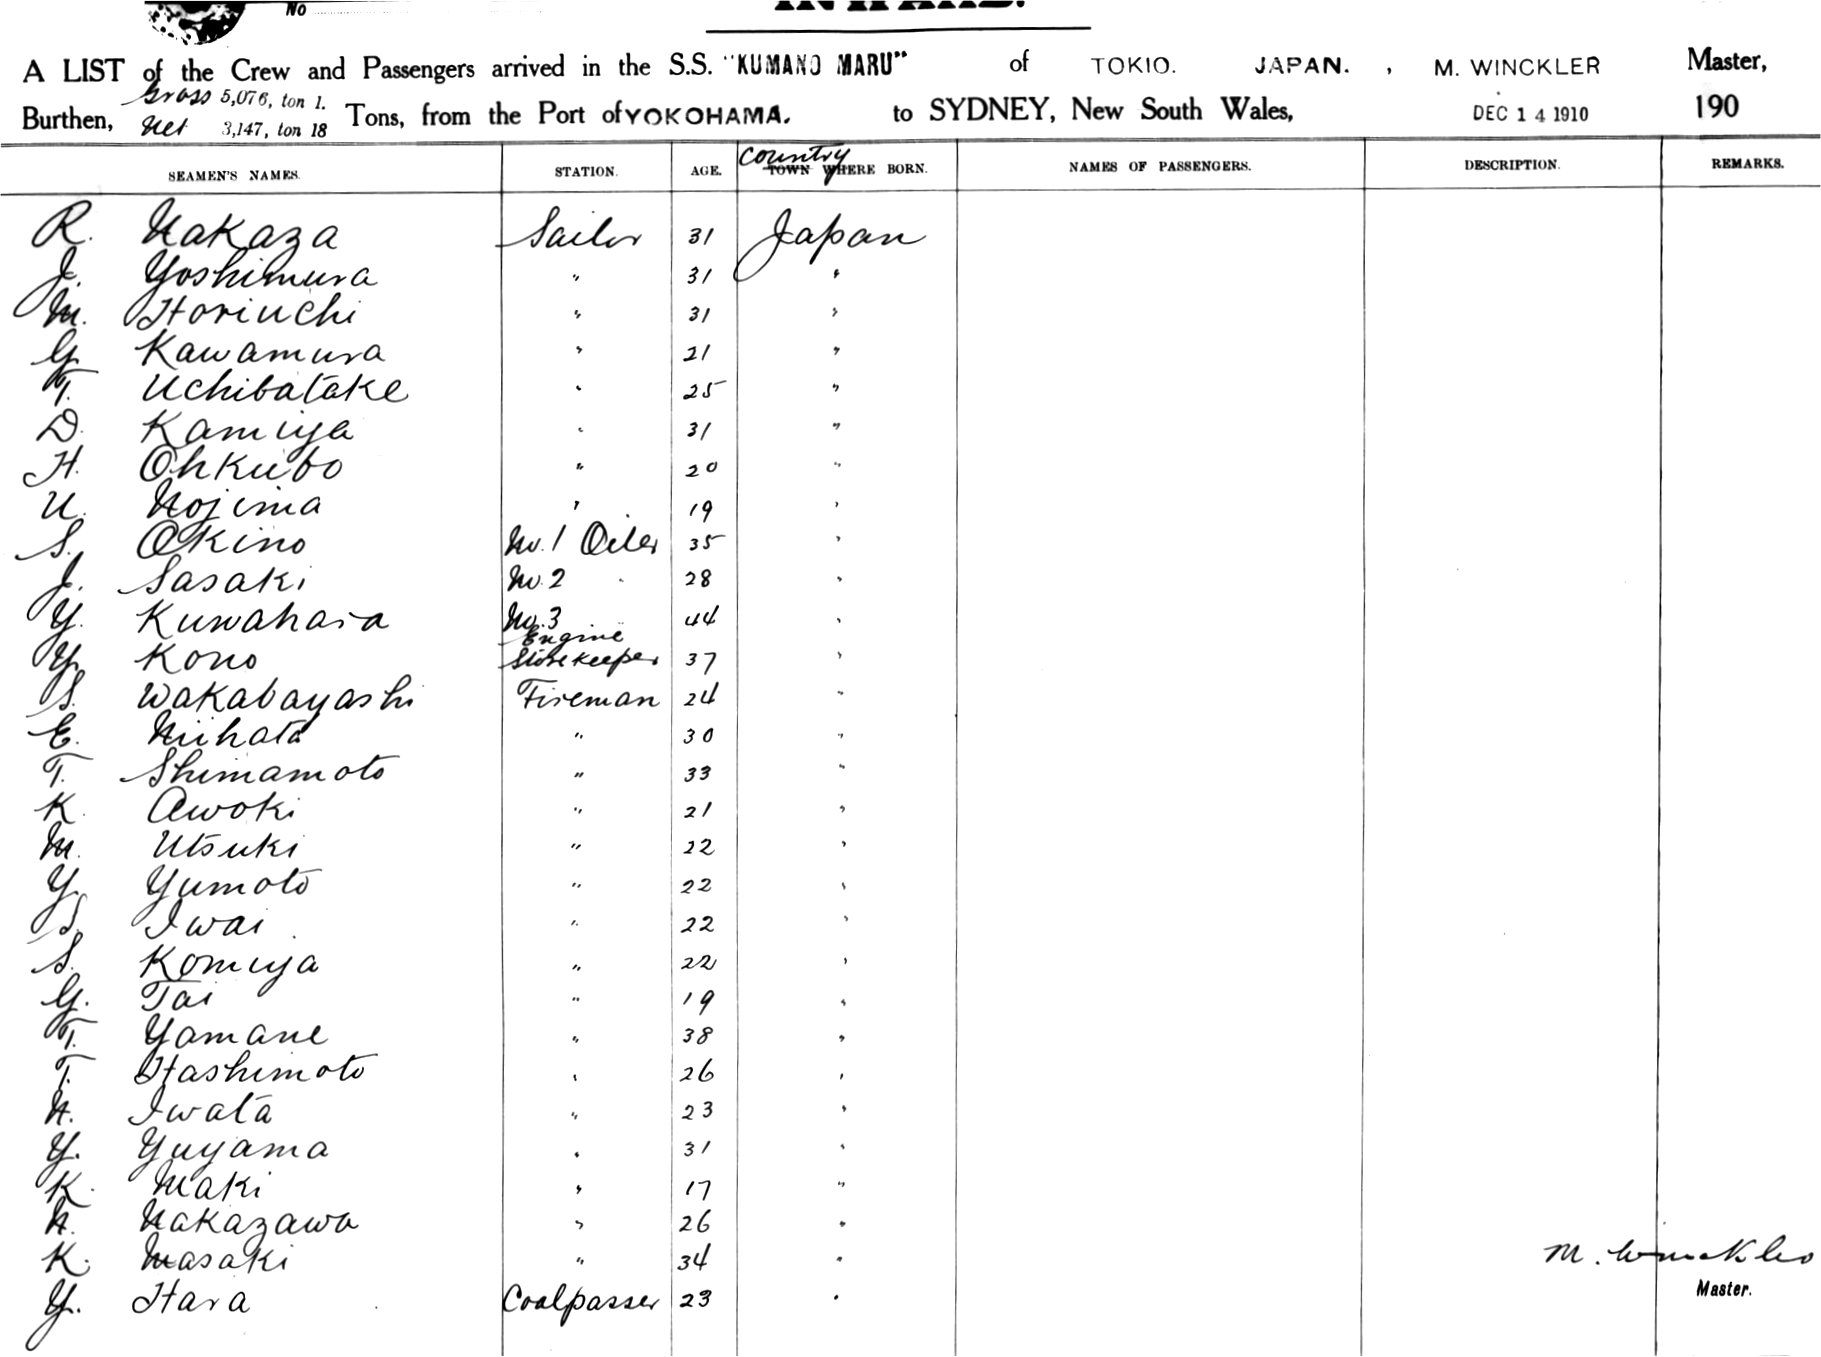 No
INWARD.
A LIST of the Crew and Passengers arrived in the S.S. "KUMANO MARU" of TOKIO. JAPAN. , M. WINCKLER Master,
Gross 5,076, ton 1.
Burthen, Net 3,147, ton 18 Tons, from the Port of YOKOHAMA. to SYDNEY, New South Wales, DEC 14 1910 190
Country
SEAMEN'S NAMES. STATION. AGE. TOWN WHERE BORN. NAMES OF PASSENGERS. DESCRIPTION. REMARKS.
R. Nakaza Sailor 31 Japan
J. Yoshimura " 31 "
M. Horiuchi " 31 "
G. Kawamura " 21 "
T. Uchibatake " 25 "
D. Kamiya " 31 "
H. Ohkubo " 20 "
U. Nojima " 19 "
S. Okino No. 1 Oiler 35 "
J. Sasaki No. 2 " 28 "
Y. Kuwahara No. 3 44 "
Y. Kono Engine Storekeeper 37 "
S. Wakabayashi Fireman 24 "
E. Niihata " 30 "
T. Shimamoto " 33 "
K. Awoki " 21 "
M. Utsuki " 22 "
Y. Yumoto " 22 "
S. Iwai " 22 "
S. Komiya " 22 "
G. Tai " 19 "
T. Yamane " 38 "
T. Hashimoto " 26 "
N. Iwata " 23 "
Y. Yuyama " 31 "
K. Maki " 17 "
N. Nakazawa " 26 "
K. Masaki " 34 "
M. Winckler
Master.
Y. Hara Coalpasser 23 "